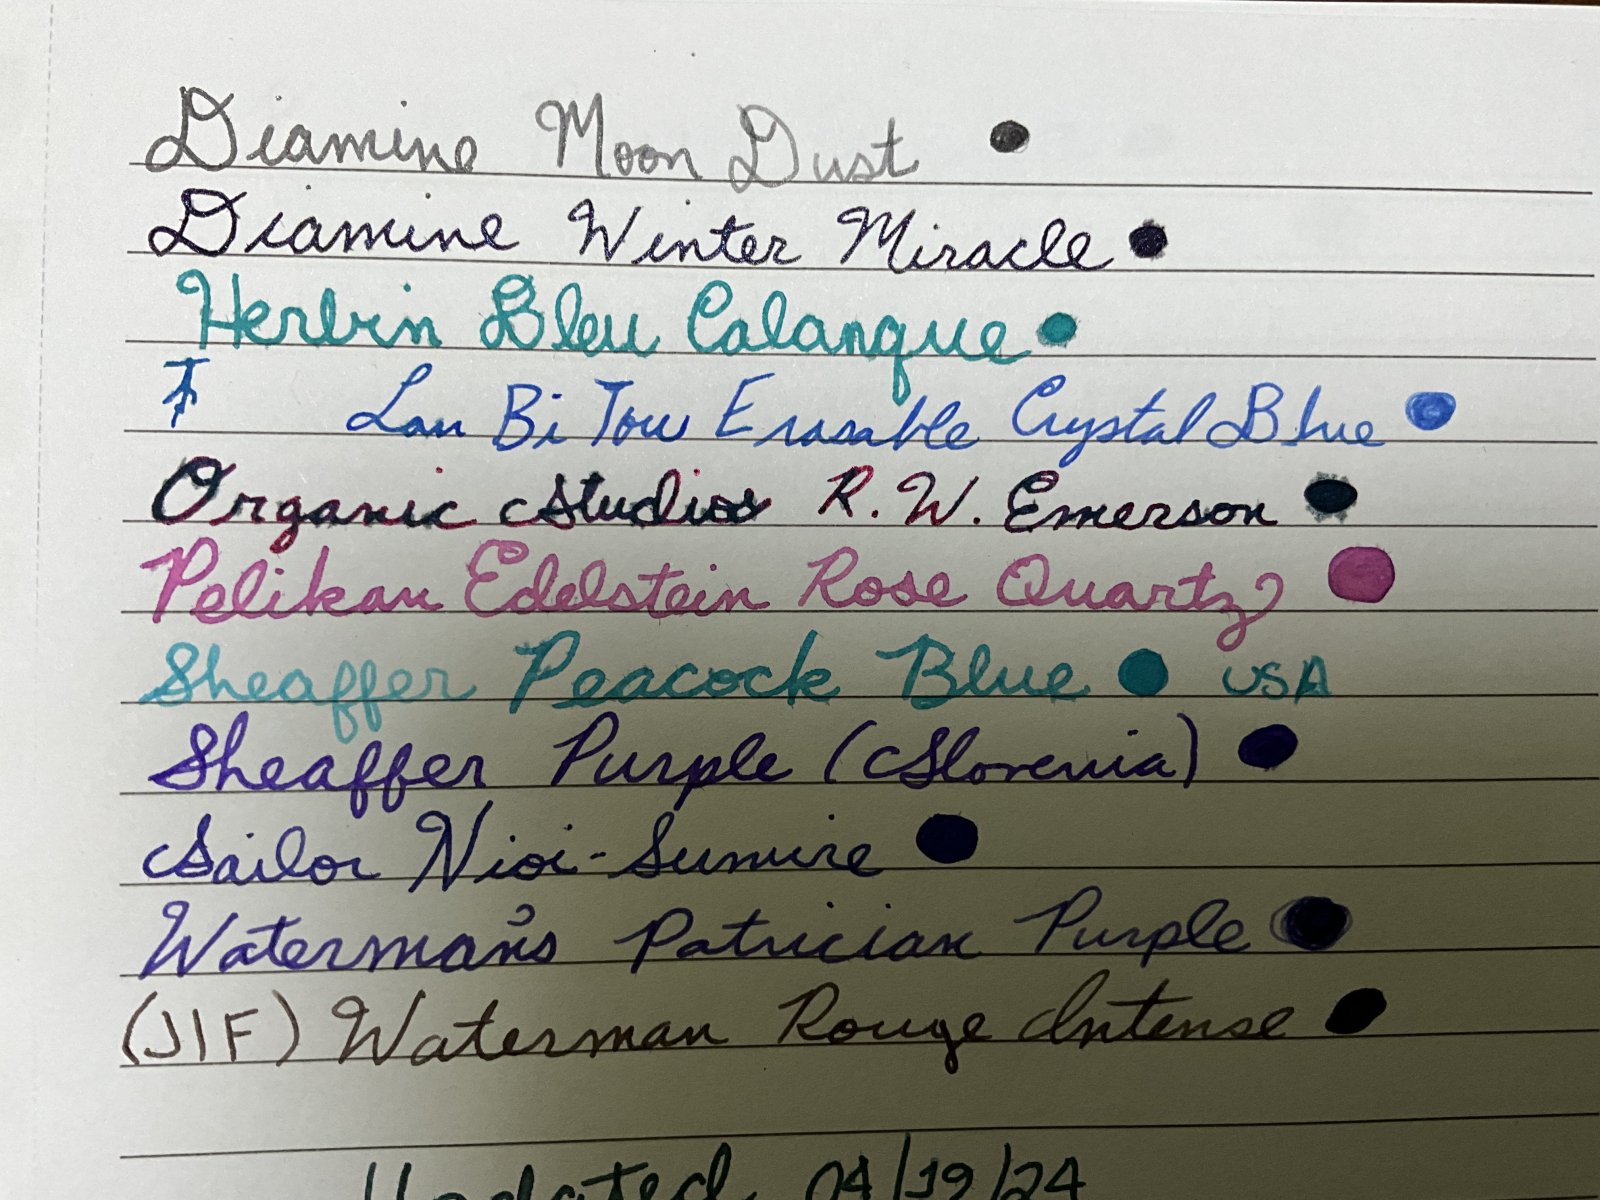 Diamine Moon Dust
Diamine Winter Miracle
Herbin Bleu Calanque
Lan Bi Tou Erasable Crystal Blue
Organic Studios R.W. Emerson
Pelikan Edelstein Rose Quartz
Sheaffer Peacock Blue USA
Sheaffer Purple (Slovenia)
Sailor Nioi-Sumire
Waterman's Patrician Purple
(JIF) Waterman Rouge Intense
Updated 04/19/24